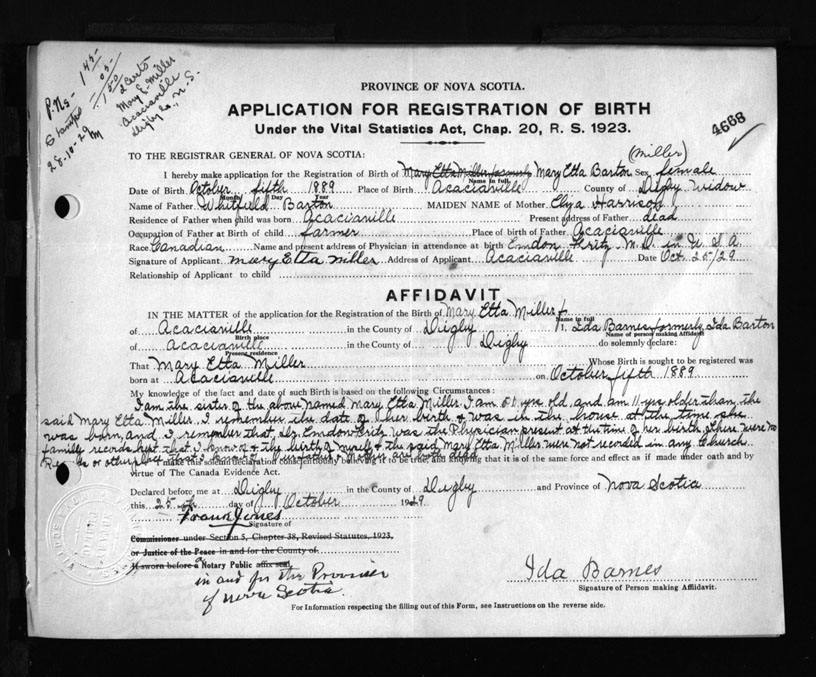 P.Ns - 1.45-
Stamps .05-
1.50
28-10-29
M
2 Certs
Mary E. Miller
Acaciaville
Digby Co., N.S.
PROVINCE OF NOVA SCOTIA.
APPLICATION FOR REGISTRATION OF BIRTH
4668
Under the Vital Statistics Act, Chap. 20, R. S. 1923.
TO THE REGISTRAR GENERAL OF NOVA SCOTIA:
(Miller)
I hereby make application for the Registration of Birth of Mary Etta Miller formerly Mary Etta Barton Sex female
Name in full
Date of Birth October fifth 1889 Place of Birth Acaciaville County of Digby Widow
Month Day Year
Name of Father Whitfield Barton MAIDEN NAME of Mother Harrison
Residence of Father when child was born Acaciaville Present address of Father dead
Occupation of Father at Birth of child farmer Place of birth of Father Acaciaville
Race Canadian Name and present address of Physician in attendance at birth Emdon Fritz M.D. in U.S.A.
Signature of Applicant Mary Etta Miller Address of Applicant Acaciaville Date Oct. 25/29
Relationship of Applicant to child
AFFIDAVIT
IN THE MATTER of the application for the Registration of the Birth of Mary Etta Miller
Name in full
of Acaciaville in the County of Digby I, Ida Barnes formerly Ida Barton
Birth place Name of person making Affidavit
of Acaciaville in the County of Digby do solemnly declare:
Present residence
That Mary Etta Miller Whose Birth is sought to be registered was
born at Acaciaville on October fifth 1889
My knowledge of the fact and date of such Birth is based on the following Circumstances:
I am the sister of the above named Mary Etta Miller. I am 51 yrs old and am 11 yrs older than the
said Mary Etta Miller. I remember the date of her birth & was in the house at the time she
was born, and I remember that Dr. Emdon Fritz was the Physician present at the time of her birth. There were no
family records kept that I know of & the birth of myself & the said Mary Etta Miller were not recorded in any Church
Records or other place that I know of our father & Mother are both dead
I make this solemn declaration conscientiously believing it to be true, and knowing that it is of the same force and effect as if made under oath and by
virtue of The Canada Evidence Act.
Declared before me at Digby in the County of Digby and Province of Nova Scotia
this 25th day of October 1929
Frank Jones
Signature of
Commissioner under Section 5, Chapter 38, Revised Statutes, 1923,
or Justice of the Peace in and for the County of
If sworn before a Notary Public affix seal,
in and for the Province
of Nova Scotia.
Ida Barnes
Signature of Person making Affidavit.
For Information respecting the filling out of this Form, see Instructions on the reverse side.